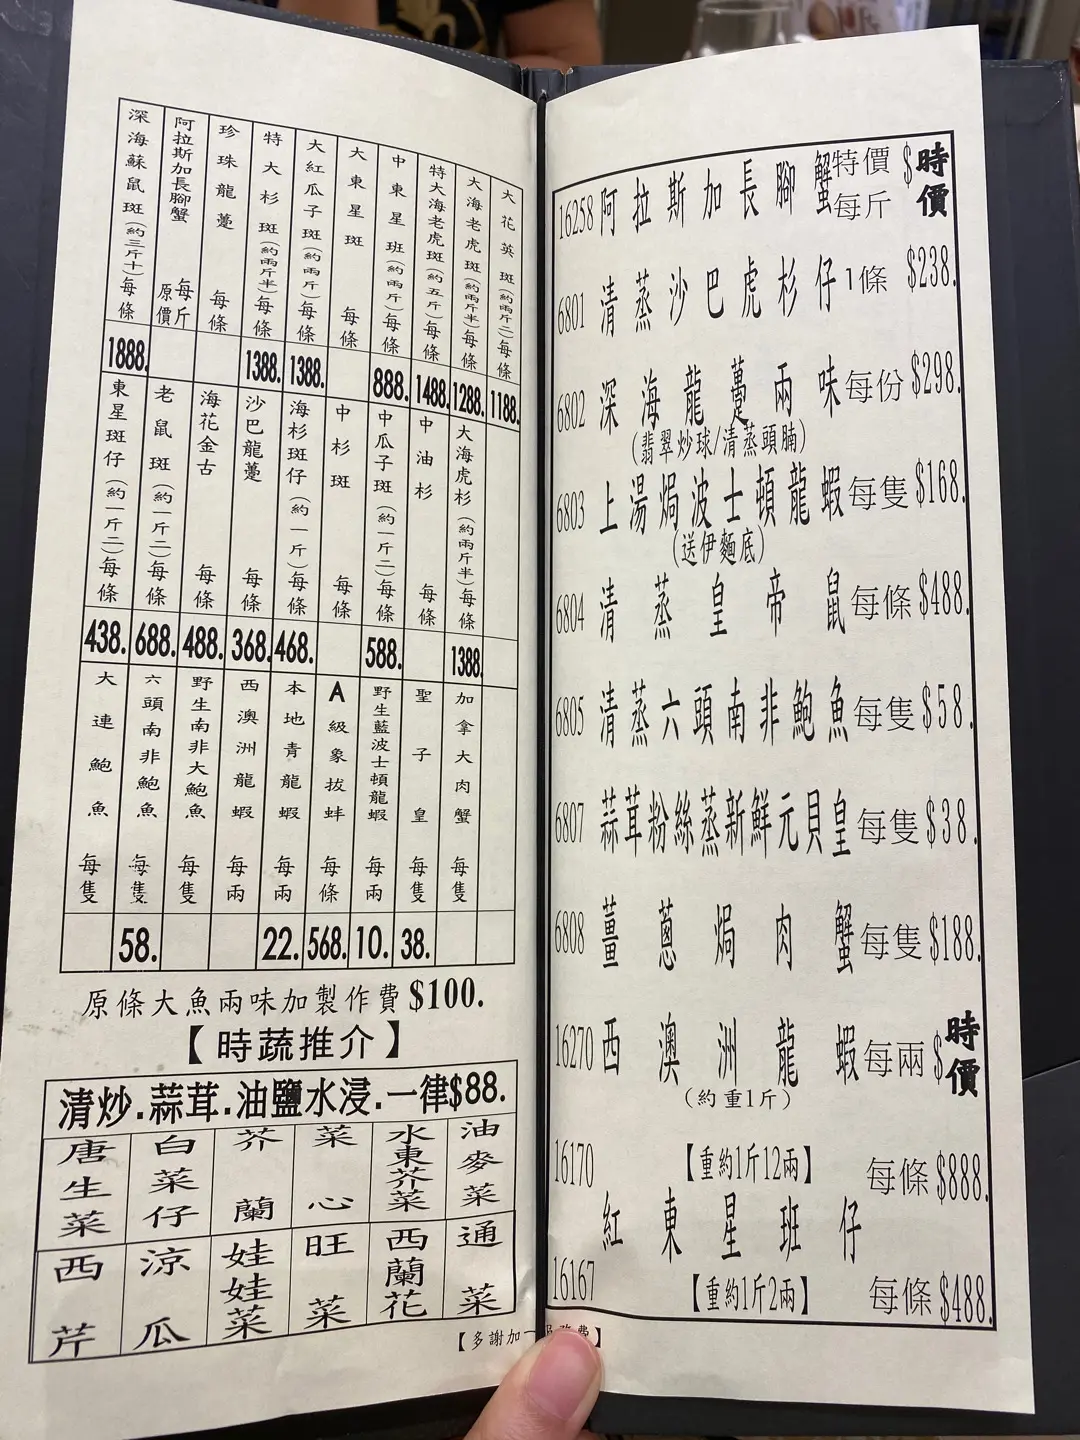 深海蘇鼠斑(約三斤十)每條 1888.
阿拉斯加長腳蟹 每斤原價
珍珠龍躉 每條
特大杉斑(約兩斤半)每條 1388.
大紅瓜子斑(約兩斤)每條 1388.
大東星斑 每條
中東星班(約兩斤)每條 888.
特大海老虎斑(約五斤)每條 1488.
大海老虎斑(約兩斤半)每條 1288.
大花英斑(約兩斤二)每條 1188.
東星斑仔(約一斤二)每條 438.
老鼠斑(約一斤二)每條 688.
海花金古 每條 488.
沙巴龍躉 每條 368.
海杉斑仔(約一斤)每條 468.
中杉斑 每條
中瓜子斑(約一斤二)每條 588.
中油杉 每條
大海虎杉(約兩斤半)每條 1388.
大連鮑魚 每隻
六頭南非鮑魚 每隻 58.
野生南非大鮑魚 每隻
西澳洲龍蝦 每兩
本地青龍蝦 每兩 22.
A級象拔蚌 每條 568.
野生藍波士頓龍蝦 每兩 10.
聖子皇 每隻 38.
加拿大肉蟹 每隻
原條大魚兩味加製作費$100.
【時蔬推介】
清炒.蒜茸.油鹽水浸.一律$88.
唐生菜 白菜仔 芥蘭 菜心 水東芥菜 油麥菜
西芹 涼瓜 娃娃菜 旺菜 西蘭花 通菜
16258 阿拉斯加長腳蟹 特價每斤 $時價
6801 清蒸沙巴虎杉仔 1條 $238.
6802 深海龍躉兩味 每份 $298.
(翡翠炒球/清蒸頭腩)
6803 上湯焗波士頓龍蝦 每隻 $168.
(送伊麵底)
6804 清蒸皇帝鼠 每條 $488.
6805 清蒸六頭南非鮑魚 每隻 $58.
6807 蒜茸粉絲蒸新鮮元貝皇 每隻 $38.
6808 薑蔥焗肉蟹 每隻 $188.
16270 西澳洲龍蝦 每兩 $時價
(約重1斤)
16170 【重約1斤12兩】 每條 $888.
紅東星班仔
16167 【重約1斤2兩】 每條 $488.
【多謝加一